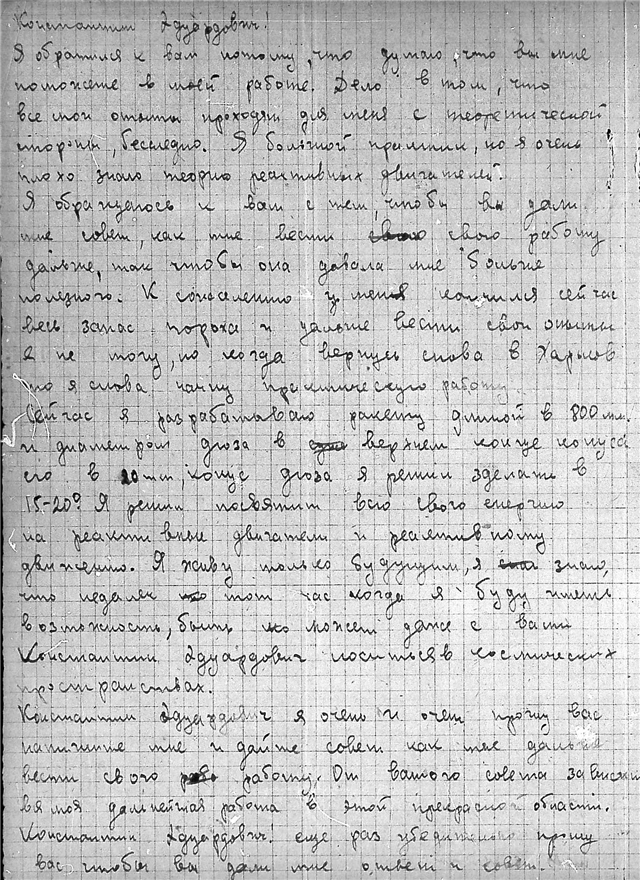 Константин Эдуардович!
Я обратился к вам потому, что думаю, что вы мне
поможете в моей работе. Дело в том, что
все мои опыты проходят для меня с теоретической
стороны, бесследно. Я большой практик, но я очень
плохо знаю теорию реактивных двигателей.
Я обращаюсь к вам с тем, чтобы вы дали
мне совет, как мне вести свою работу
дальше, так чтобы она давала мне больше
полезного. К сожалению у меня кончился сейчас
весь запас пороха и дальше вести свои опыты
я не могу, но когда вернусь снова в Харьков
то я снова начну практическую работу.
Сейчас я разрабатываю ракету длиной в 800 мм.
и диаметром дюза в верхнем конце конуса
его в 20 mm, конус дюза я решил зделать в
15-20° Я решил посвятит всю свою енергию
на реактивные двигатели и реактивному
движению. Я живу только будущим, я знаю,
что недалек тот час когда я буду иметь
возможность, быть может даже с вами
Константин Эдуардович носиться в космических
пространствах.
Константин Эдуардович я очень и очень прошу вас
напишите мне и дайте совет как мне дальше
вести свою работу. От вашого совета зависит
вся моя дальнейшая работа в этой прекрасной области.
Константин Эдуардович! еще раз убедительно прошу
вас чтобы вы дали мне ответ и совет.